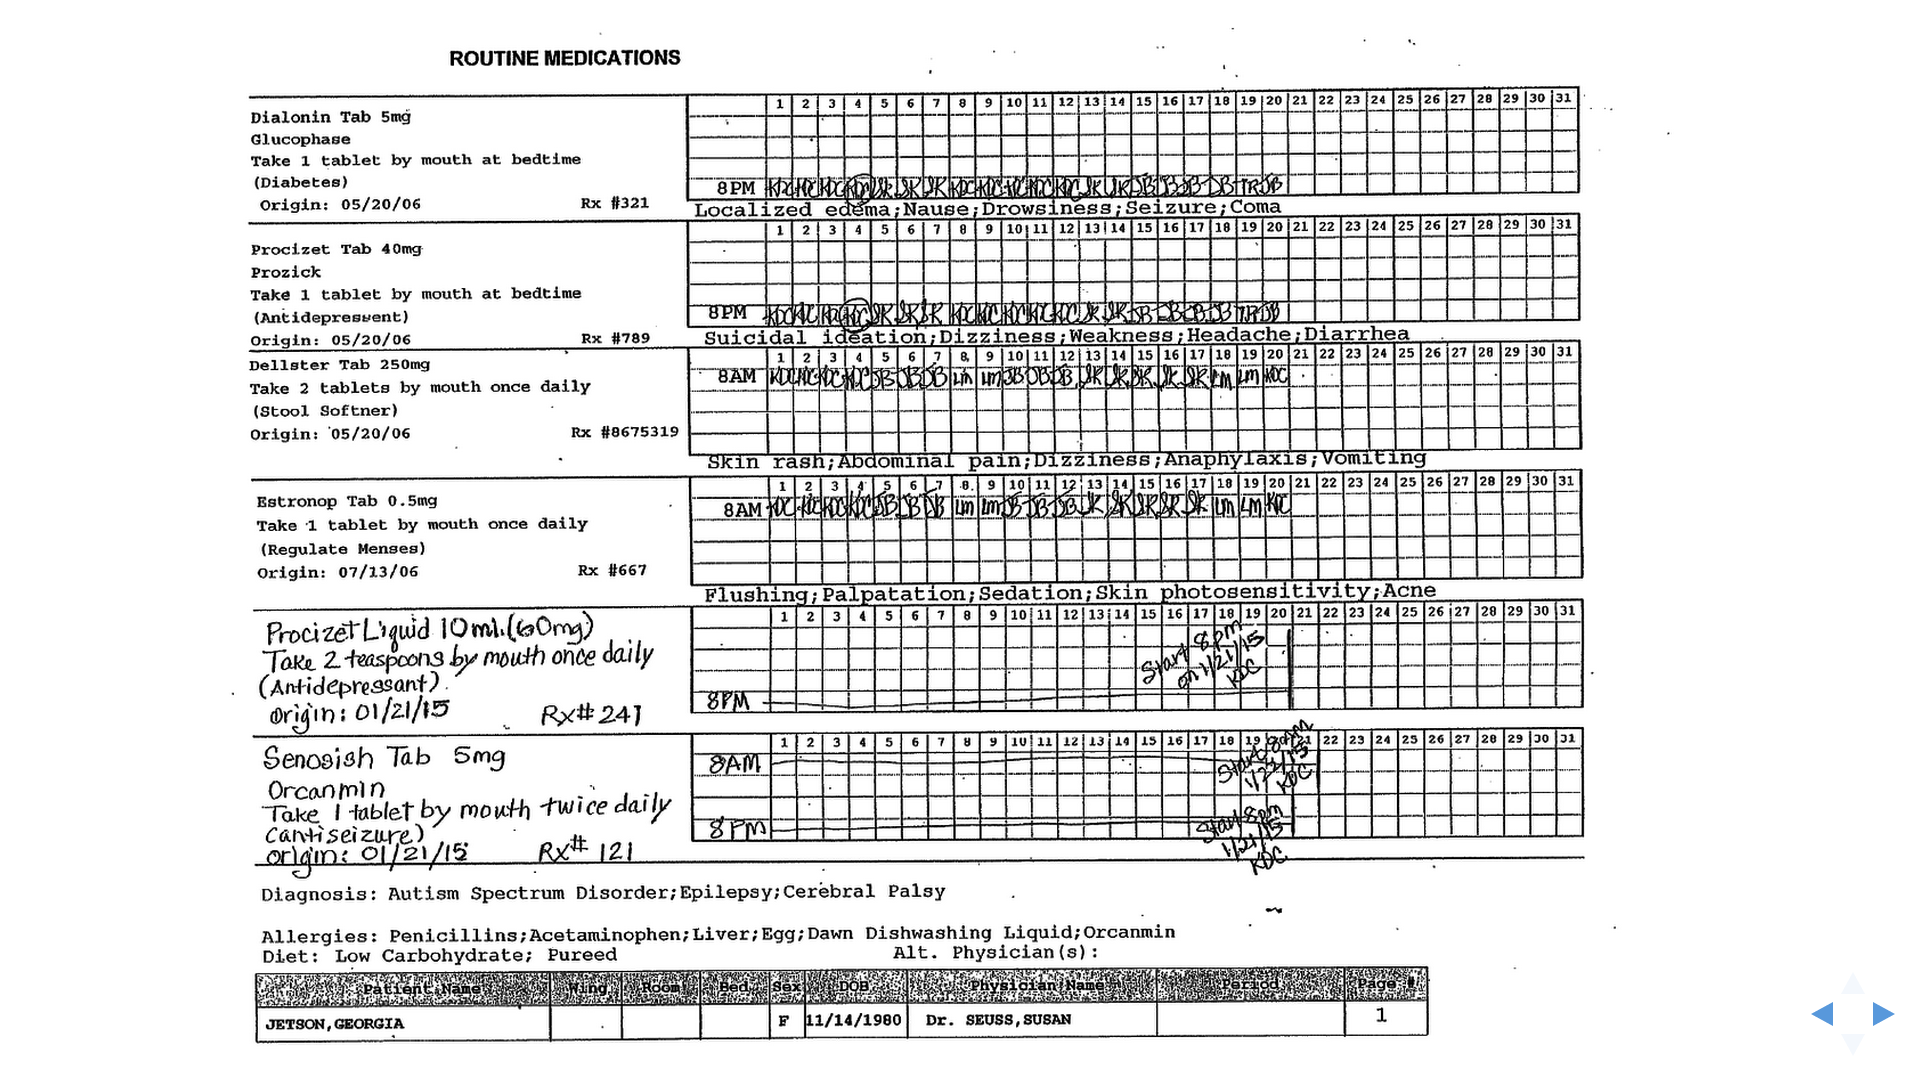 ROUTINE MEDICATIONS
Dialonin Tab 5mg
Glucophase
Take 1 tablet by mouth at bedtime
(Diabetes)
Origin: 05/20/06 Rx #321
1 2 3 4 5 6 7 8 9 10 11 12 13 14 15 16 17 18 19 20 21 22 23 24 25 26 27 28 29 30 31
8PM KDC KDC KDC KDC SK SK SK KDC KDC KDC KDC KDC SK SK JB JB JB JB TR JB
Localized edema;Nause;Drowsiness;Seizure;Coma
Procizet Tab 40mg
Prozick
Take 1 tablet by mouth at bedtime
(Antidepressent)
Origin: 05/20/06 Rx #789
1 2 3 4 5 6 7 8 9 10 11 12 13 14 15 16 17 18 19 20 21 22 23 24 25 26 27 28 29 30 31
8PM KDC KDC KDC KDC SK SK SK KDC KDC KDC KDC KDC SK SK JB JB JB JB TR JB
Suicidal ideation;Dizziness;Weakness;Headache;Diarrhea
Dellster Tab 250mg
Take 2 tablets by mouth once daily
(Stool Softner)
Origin: 05/20/06 Rx #8675319
1 2 3 4 5 6 7 8 9 10 11 12 13 14 15 16 17 18 19 20 21 22 23 24 25 26 27 28 29 30 31
8AM KDC KDC KDC KDC JB JB JB LM LM JB JB JB SK SK SK SK SK LM LM KDC
Skin rash;Abdominal pain;Dizziness;Anaphylaxis;Vomiting
Estronop Tab 0.5mg
Take 1 tablet by mouth once daily
(Regulate Menses)
Origin: 07/13/06 Rx #667
1 2 3 4 5 6 7 8 9 10 11 12 13 14 15 16 17 18 19 20 21 22 23 24 25 26 27 28 29 30 31
8AM KDC KDC KDC KDC JB JB JB LM LM JB JB JB SK SK SK SK SK LM LM KDC
Flushing;Palpatation;Sedation;Skin photosensitivity;Acne
Procizet Liquid 10ml.(60mg)
Take 2 teaspoons by mouth once daily
(Antidepressant)
Origin: 01/21/15 Rx# 241
1 2 3 4 5 6 7 8 9 10 11 12 13 14 15 16 17 18 19 20 21 22 23 24 25 26 27 28 29 30 31
Start 8pm
on 1/21/15
KDC
8PM
Senosish Tab 5mg
Orcanmin
Take 1 tablet by mouth twice daily
(antiseizure)
origin: 01/21/15 Rx# 121
1 2 3 4 5 6 7 8 9 10 11 12 13 14 15 16 17 18 19 20 21 22 23 24 25 26 27 28 29 30 31
8AM
Start 8am
1/22/15
KDC
8PM
Start 8pm
1/21/15
KDC
Diagnosis: Autism Spectrum Disorder;Epilepsy;Cerebral Palsy
Allergies: Penicillins;Acetaminophen;Liver;Egg;Dawn Dishwashing Liquid;Orcanmin
Diet: Low Carbohydrate; Pureed Alt. Physician(s):
Patient Name Wing Room Bed Sex DOB Physician Name Period Page #
JETSON,GEORGIA F 11/14/1980 Dr. SEUSS,SUSAN 1